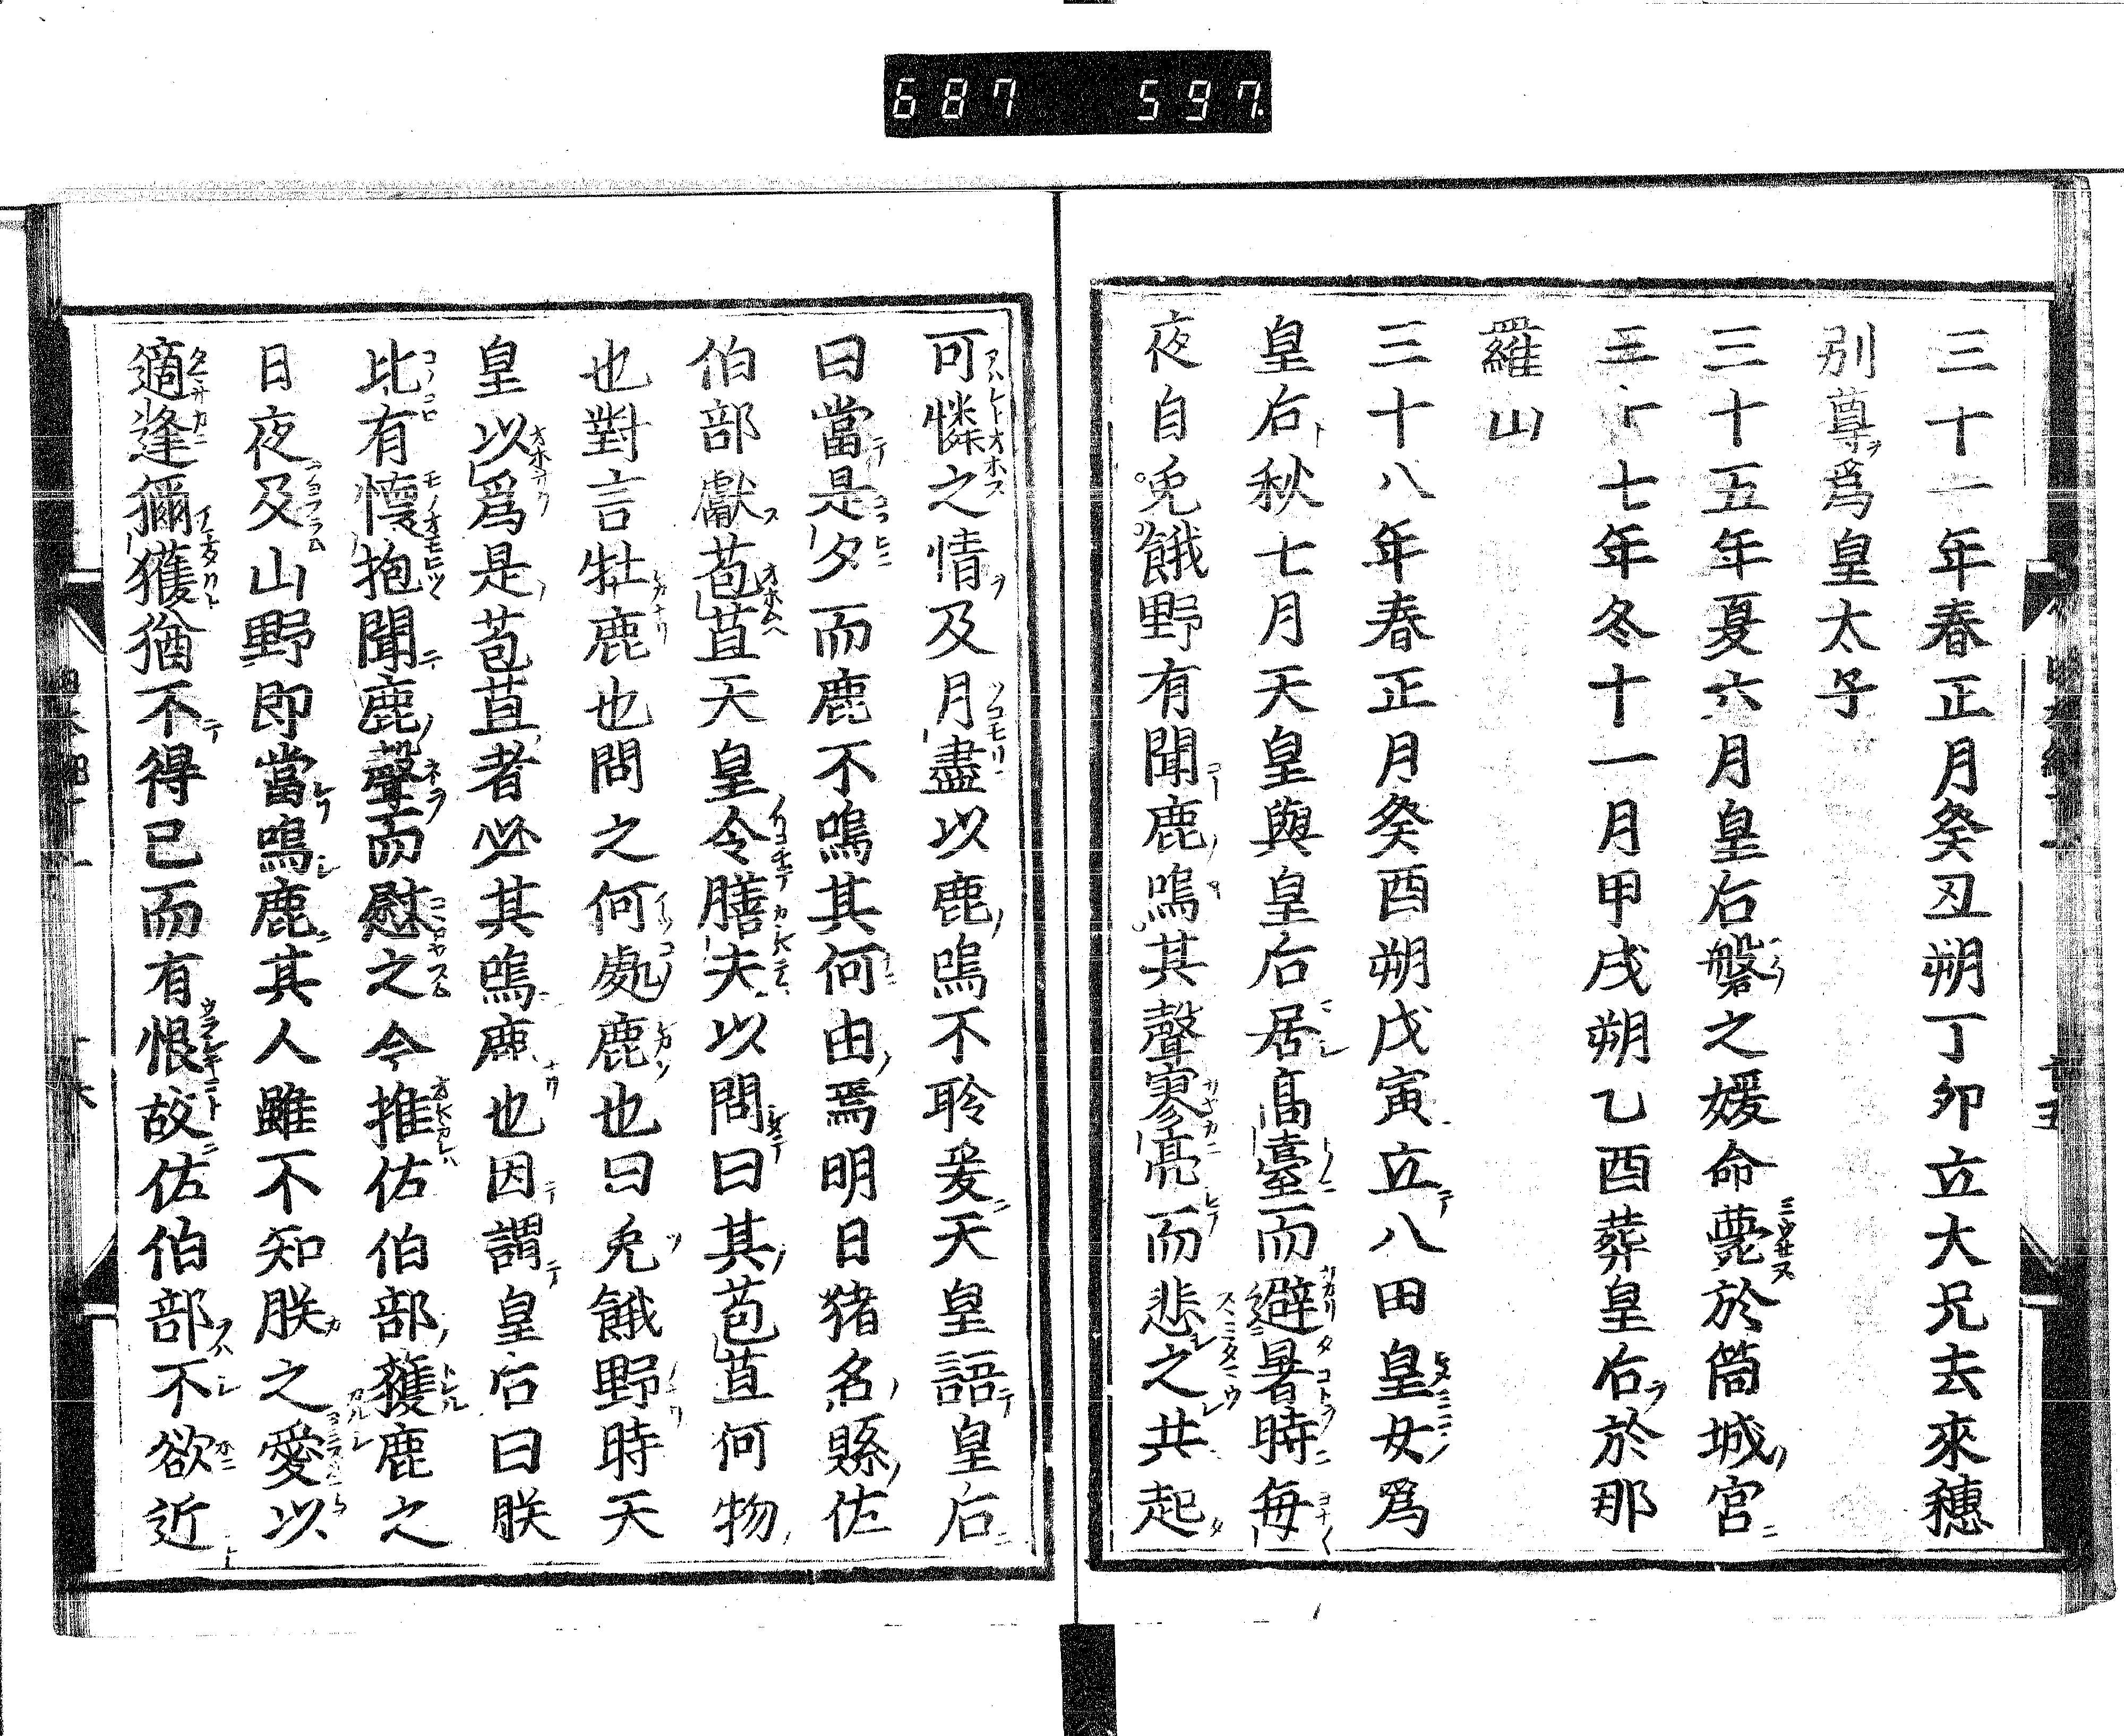 687 597.
三十一年春正月癸丑朔丁卯立大兄去來穗
別尊爲皇太子
三十五年夏六月皇后磐之媛命薨於筒城宮
三十七年冬十一月甲戌朔乙酉葬皇后於那
羅山
三十八年春正月癸酉朔戊寅立八田皇女爲
皇后秋七月天皇與皇后居高臺而避暑時毎
夜自兎餓野有聞鹿鳴其聲寥亮而悲之共起
可憐之情及月盡以鹿鳴不聆爰天皇語皇后
曰當是夕而鹿不鳴其何由焉明日猪名縣佐
伯部獻苞苴天皇令膳夫以問曰其苞苴何物
也對言牡鹿也問之何處鹿也曰兎餓野時天
皇以爲是苞苴者必其鳴鹿也因謂皇后曰朕
比有懷抱聞鹿聲而慰之今推佐伯部獲鹿之
日夜及山野即當鳴鹿其人雖不知朕之愛以
適逢獮獲猶不得已而有恨故佐伯部不欲近